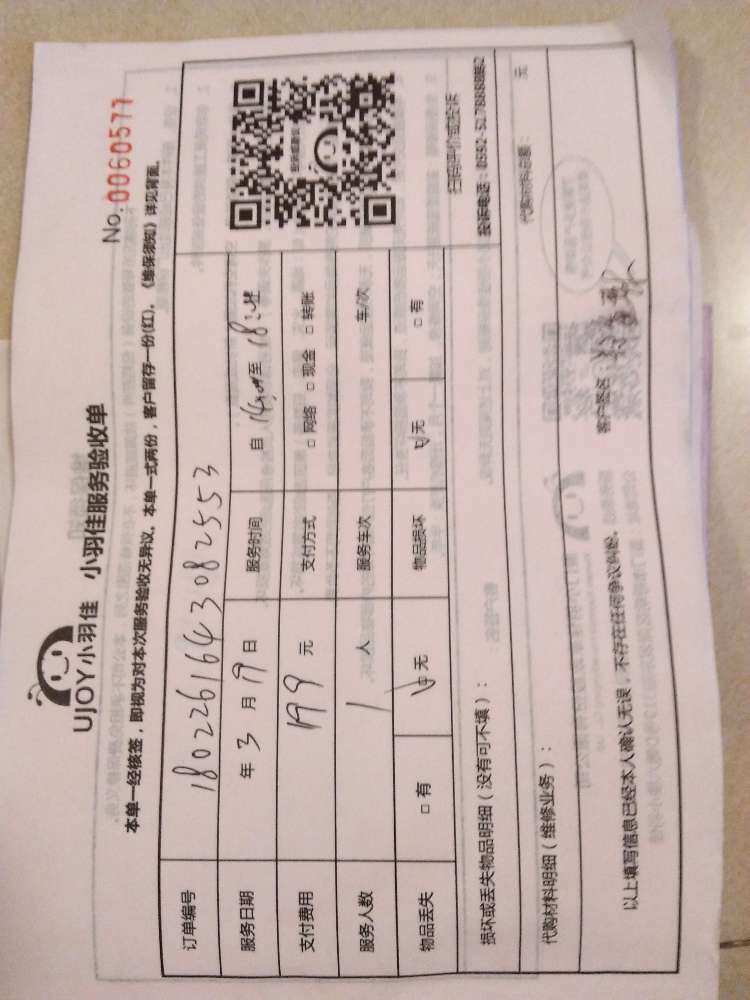 UJOY小羽佳 小羽佳服务验收单
No.0060577
本单一经核签，即视为对本次服务验收无异议。本单一式两份，客户留存一份(红)。《维保须知》详见背面。
订单编号 1802261643082553
服务日期 年 3 月 19 日 服务时间 自 14:00 至 18:00
支付费用 199 元 支付方式 □ 网络 □ 现金 □ 转账
服务人数 1 人 服务车次 车/次
物品丢失 □ 有 ☑ 无 物品损坏 ☑ 无 □ 有
扫码评价或投诉
损坏或丢失物品明细（没有可不填）：
代购材料明细（维修业务）： 代购材料总额： 元
以上填写信息已经本人确认无误，不存在任何争议纠纷。 客户签名